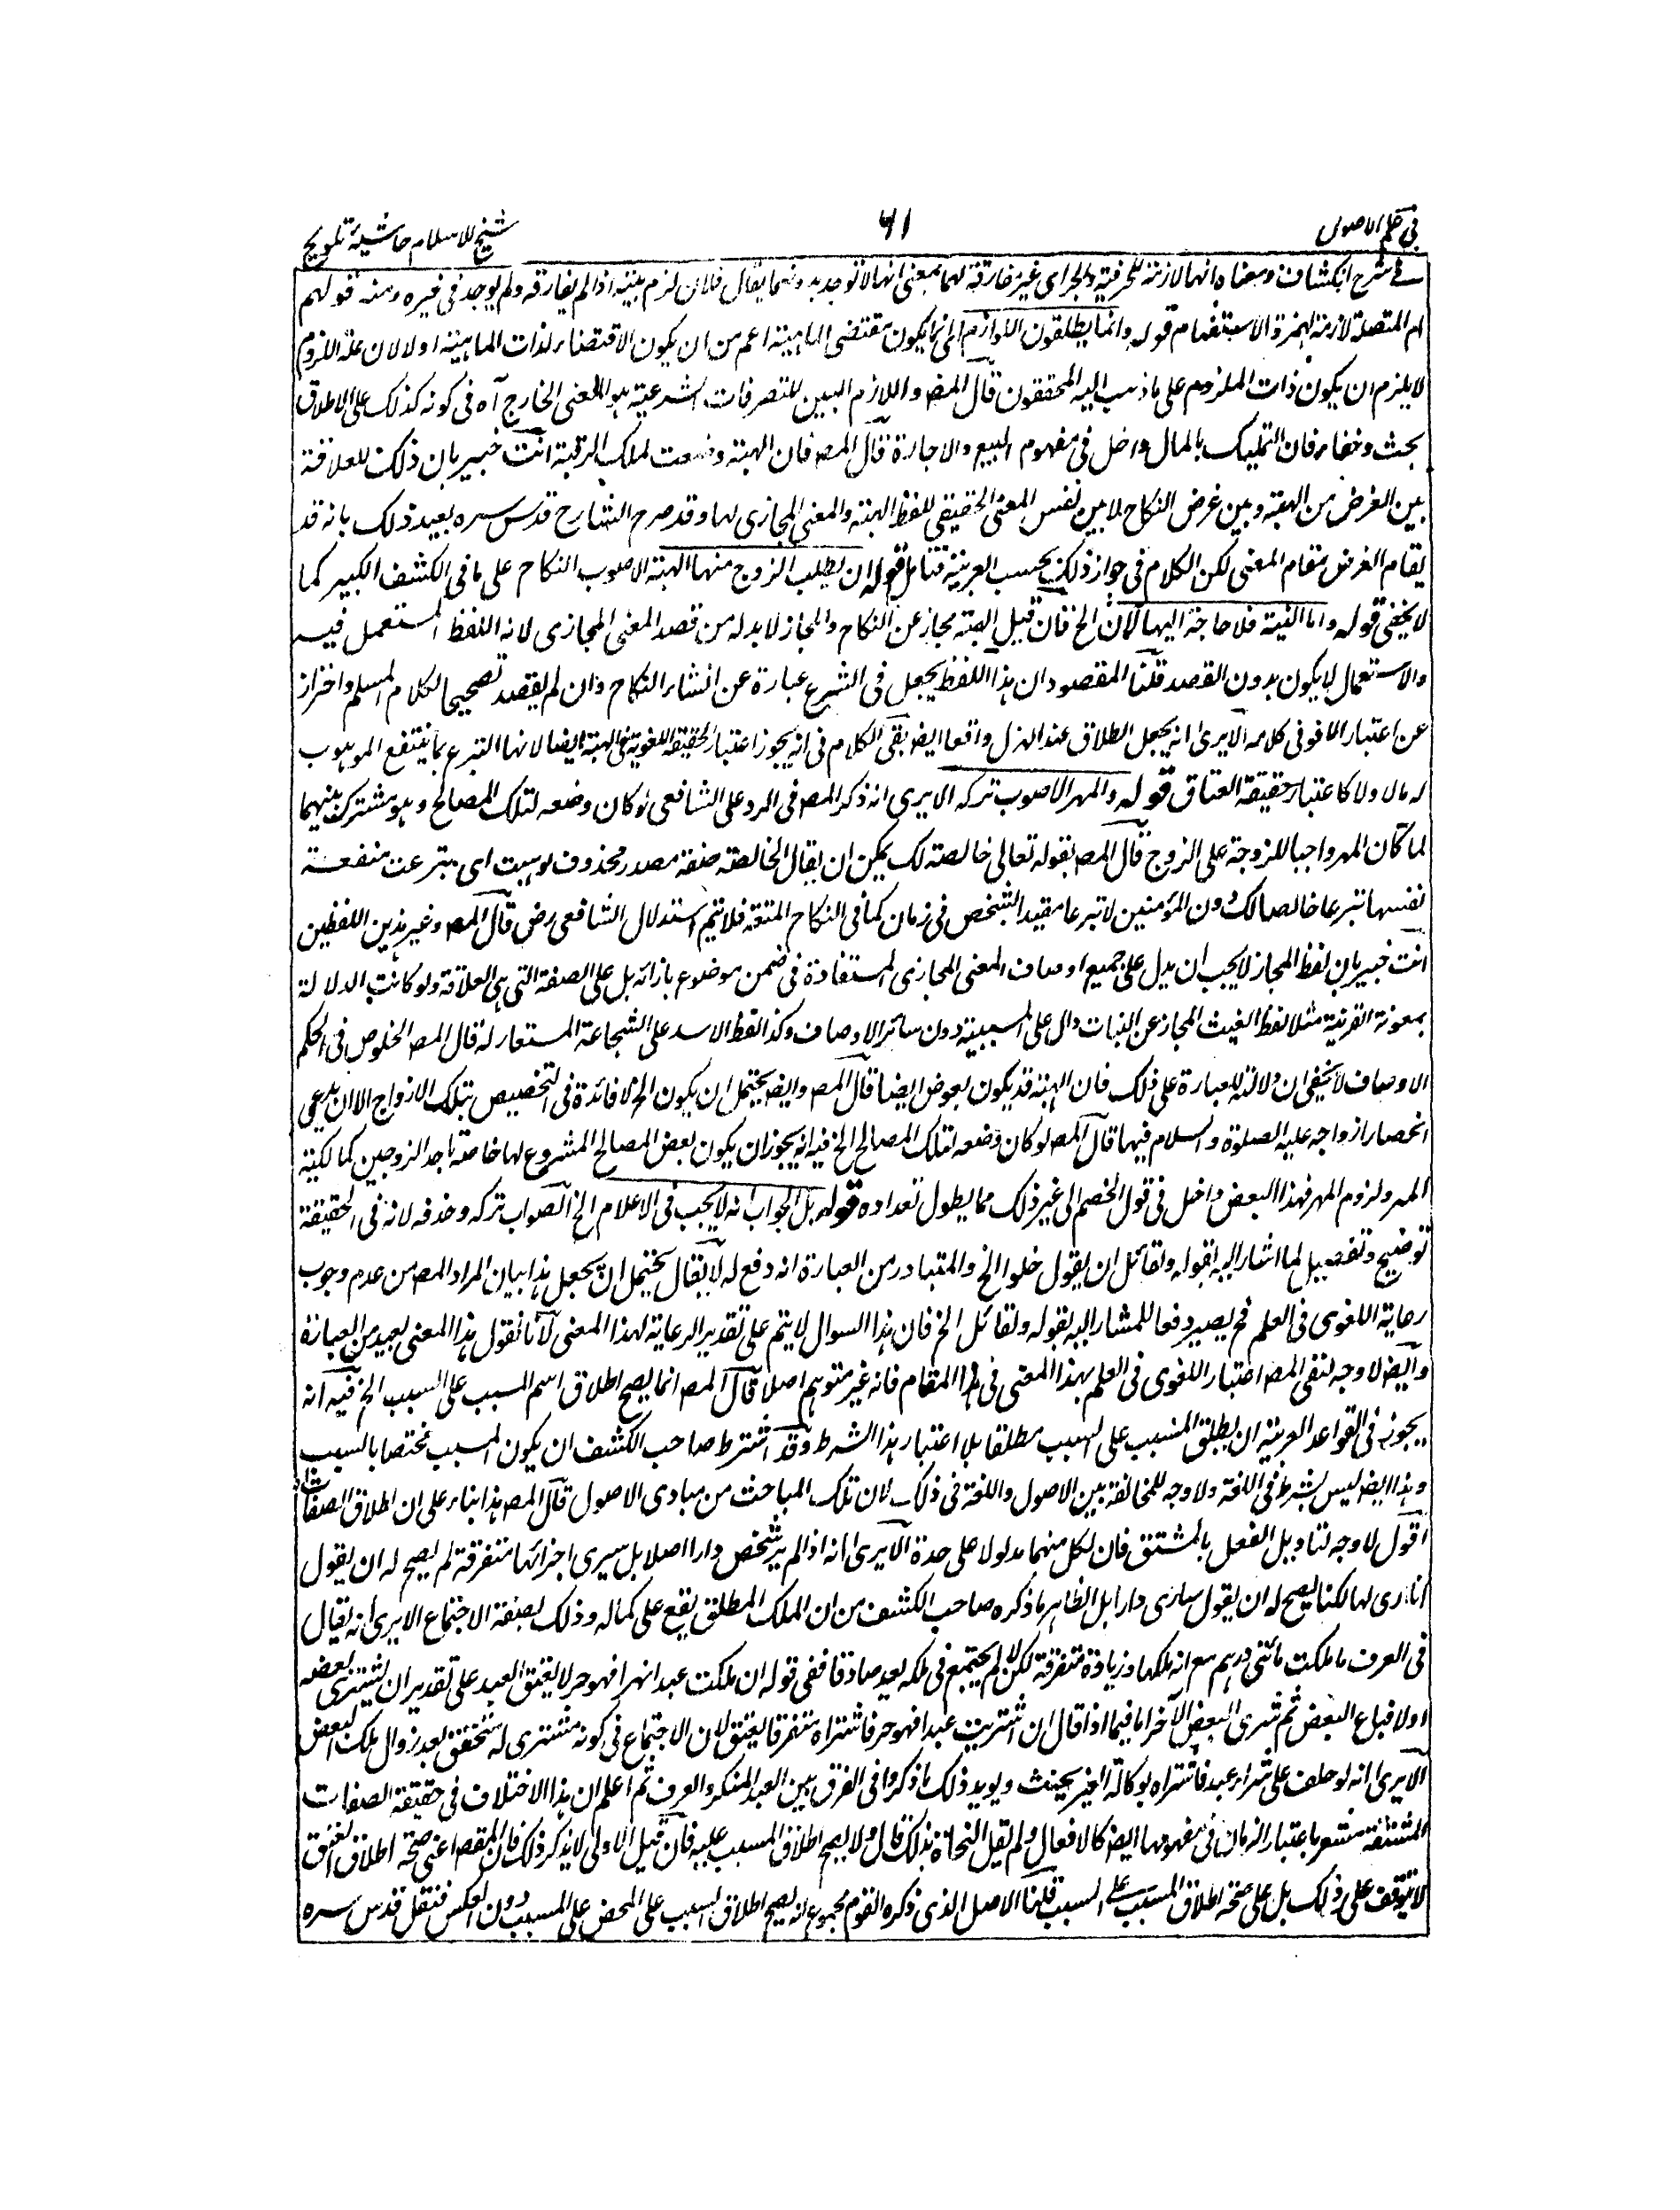 في علم الاصول
٦١
شيخ الاسلام حاشية تلويح
في شرح الكشاف ومعناه انها لازمة للحرفية والجراى غير مفارقة لهما بمعنى انها لا توجد بدونهما يقال فلان لزم بيته اذا لم يفارقه ولم يوجد في غيره ومنه قولهم
ام المتصلة لازمة لهمزة الاستفهام قوله وانما يطلقون اللوازم الخ ما يكون مقتضى الماهية اعم من ان يكون الاقتضاء لذات الماهية اولا لان علة اللزوم
لا يلزم ان يكون ذات الملزوم على ما ذهب اليه المحققون قال المص واللازم البين للتصرفات الشرعية هو المعنى الخارج آه في كونه كذلك على الاطلاق
بحث وخفاء فان التمليك بالمال داخل في مفهوم البيع والاجارة قال المص فان الهبة وضعت لملك الرقبة انت خبير بان ذلك للعلاقة
بين الغرض من الهبة وبين غرض النكاح لا بين نفس المعنى الحقيقي للفظ الهبة والمعنى المجازى لها وقد صرح الشارح قدس سره بعيد ذلك بانه قد
يقام الغرض مقام المعنى لكن الكلام في جواز ذلك بحسب العربية فتامل قوله ان يطلب الزوج منها الهبة الاصوب النكاح على ما في الكشف الكبير كما
لا يخفى قوله واما النية فلا حاجة اليها لان الخ فان قيل الهبة مجاز عن النكاح والمجاز لا بد له من قصد المعنى المجازى لانه اللفظ المستعمل فيه
والاستعمال لا يكون بدون القصد قلنا المقصود ان هذا اللفظ يجعل في الشرع عبارة عن انشاء النكاح وان لم يقصد تصحيحا لكلام المسلم واحتراز
عن اعتبار اللغو في كلامه الا يرى انه يجعل الطلاق عند الهزل واقعا ايض بقى الكلام في انه يجوز اعتبار الحقيقة اللغوية في الهبة ايضا لانها التبرع بما ينتفع الموهوب
له مالا ولا كاعتبار حقيقة العتاق قوله والمهر الاصوب تركه الا يرى انه ذكر المص في الرد على الشافعى لو كان وضعه لتلك المصالح وهو مشترك بينهما
لما كان المهر واجبا للزوجة على الزوج قال المص بقوله تعالى خالصة لك يمكن ان يقال الخالصة صفة مصدر محذوف لوهبت اى تبرعت منفعة
نفسها تبرعا خالصا لك دون المؤمنين لا تبرعا مقيد الشخص في زمان كما في النكاح المتعة فلا يتم استدلال الشافعى رض قال المص وغير هذين اللفظين
انت خبير بان لفظ المجاز لا يجب ان يدل على جميع اوصاف المعنى المجازى المستفادة في ضمن موضوع بازائه بل على الصفة التى هى العلاقة ولو كانت الدلالة
بمعونة القرينة مثلا لفظ الغيث المجاز عن النبات دال على المسببية دون سائر الاوصاف وكذا لفظ الاسد على الشجاعة المستعار له قال المص الخلوص في الحكم
الاوصاف لا يخفى ان دلالته للعبارة على ذلك فان الهبة قد يكون بعوض ايضا قال المص وايض يحتمل ان يكون الخ لا فائدة في التخصيص بتلك الازواج الا ان يدعى
انحصار ازواجه عليه الصلوة والسلام فيها قال المص لو كان وضعه لتلك المصالح الخ فيه انه يجوز ان يكون بعض المصالح المشروع لها خاصة باحد الزوجين كمالكية
المهر ولزوم المهر فهذا البعض داخل في قول الخصم الى غير ذلك مما يطول تعداده قوله بل الجواب انه لا يجب في الاعلام الخ الصواب تركه وحذفه لانه في الحقيقة
توضيح وتفصيل لما اشار اليه بقوله ولقائل ان يقول خلوا الخ والمتبادر من العبارة انه دفع له لا يقال يحتمل ان يجعل هذا بيان المراد المص من عدم وجوب
رعاية اللغوى في العلم فح يصير دفعا للمشار اليه بقوله ولقائل الخ فان هذا السوال لا يتم على تقدير الرعاية لهذا المعنى لانا نقول هذا المعنى بعيد من العبارة
وايض لا وجه لنفى المص اعتبار اللغوى في العلم بهذا المعنى في هذا المقام فانه غير متوهم اصلا قال المص انما يصح اطلاق اسم المسبب على السبب الخ فيه انه
يجوز في القواعد العربية ان يطلق المسبب على السبب مطلقا بلا اعتبار هذا الشرط وقد اشترط صاحب الكشف ان يكون المسبب مختصا بالسبب
وهذا ايض ليس بشرط في اللغة ولا وجه للمخالفة بين الاصول واللغة في ذلك لان تلك المباحث من مبادى الاصول قال المص هذا بناء على ان اطلاق الصفات الخ
اقول لا وجه لتاويل الفعل بالمشتق فان لكل منهما مدلولا على حدة الا يرى انه اذا لم ير شخص دارا اصلا بل سيرى اجزائها متفرقة لم يصح له ان يقول
انا رى لها لكنا يصح له ان يقول سارى دارا بل الظاهر ما ذكره صاحب الكشف من ان الملك المطلق يقع على كماله وذلك بصفة الاجتماع الا يرى انه يقال
في العرف ما ملكت مائتى درهم مع انه ملكها وزيادة متفرقة لكن لما لم يجتمع في ملكه يعد صادقا ففى قوله ان ملكت عبدا نهرا فهو حر لا يعتق العبد على تقدير ان يشترى بعضه
اولا فباع البعض ثم شرى البعض الآخر اما فيما اذا قال ان اشتريت عبدا فهو حر فاشتراه متفرقا يعتق لان الاجتماع في كونه مشترى له متحقق بعد زوال ملك البعض
الا يرى انه لو حلف على شراء عبد فاشتراه بوكالة الغير يحنث ويويد ذلك ما ذكروا في الفرق بين العبد المنكر والعرف ثم اعلم ان هذا الاختلاف في حقيقة الصفات
المشتقة مشعر باعتبار الزمان في مفهومها ايض كالافعال ولم يقل النحاة بذلك قال ولا يصح اطلاق المسبب عليه فان قيل الاولى لا يذكر ذلك فان المقص اعنى صحة اطلاق العتق
لا يتوقف على ذلك بل على صحة اطلاق المسبب على السبب قلنا الاصل الذى ذكره القوم مجموع انه يصح اطلاق السبب على المحض على المسبب دون العكس فنقل قدس سره